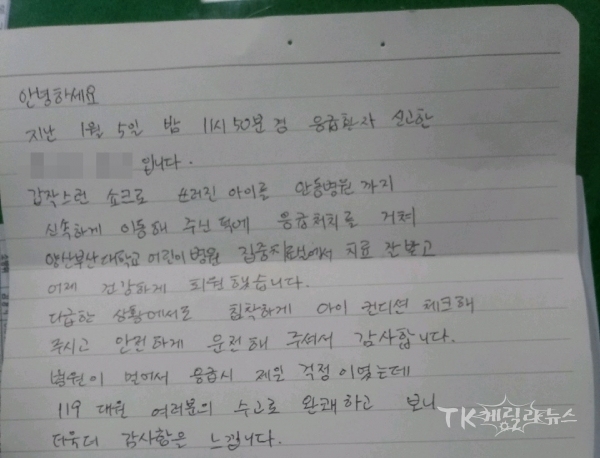 안녕하세요
지난 1월 5일 밤 11시 50분 경 응급환자 신고한
입니다.
갑작스런 쇼크로 쓰러진 아이를 안동병원 까지
신속하게 이동해 주신 덕에 응급처치를 거쳐
양산부산대학교 어린이병원 집중치료실에서 치료 잘 받고
어제 건강하게 퇴원했습니다.
다급한 상황에서도 침착하게 아이 컨디션 체크해
주시고 안전하게 운전해 주셔서 감사합니다.
병원이 멀어서 응급시 제일 걱정이였는데
119 대원 여러분의 수고로 완쾌하고 보니
더욱더 감사함은 느낍니다.
TK게릴라뉴스